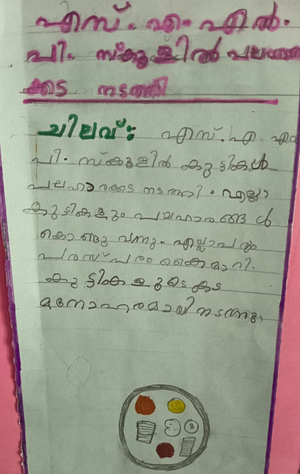 എസ്. എം. എൽ.
പി. സ്കൂളിൽ പലഹാര
ക്കട നടത്തി
ചിലവ്: എസ്. എം എൽ
പി. സ്കൂളിൽ കുട്ടികൾ
പലഹാരക്കട നടത്തി. എല്ലാ
കുട്ടികളും പലഹാരങ്ങൾ
കൊണ്ടു വന്നു. എല്ലാവരും
പരസ്പരം കൈമാറി.
കുട്ടികളുടെ കട
മനോഹരമായി നടന്നു.